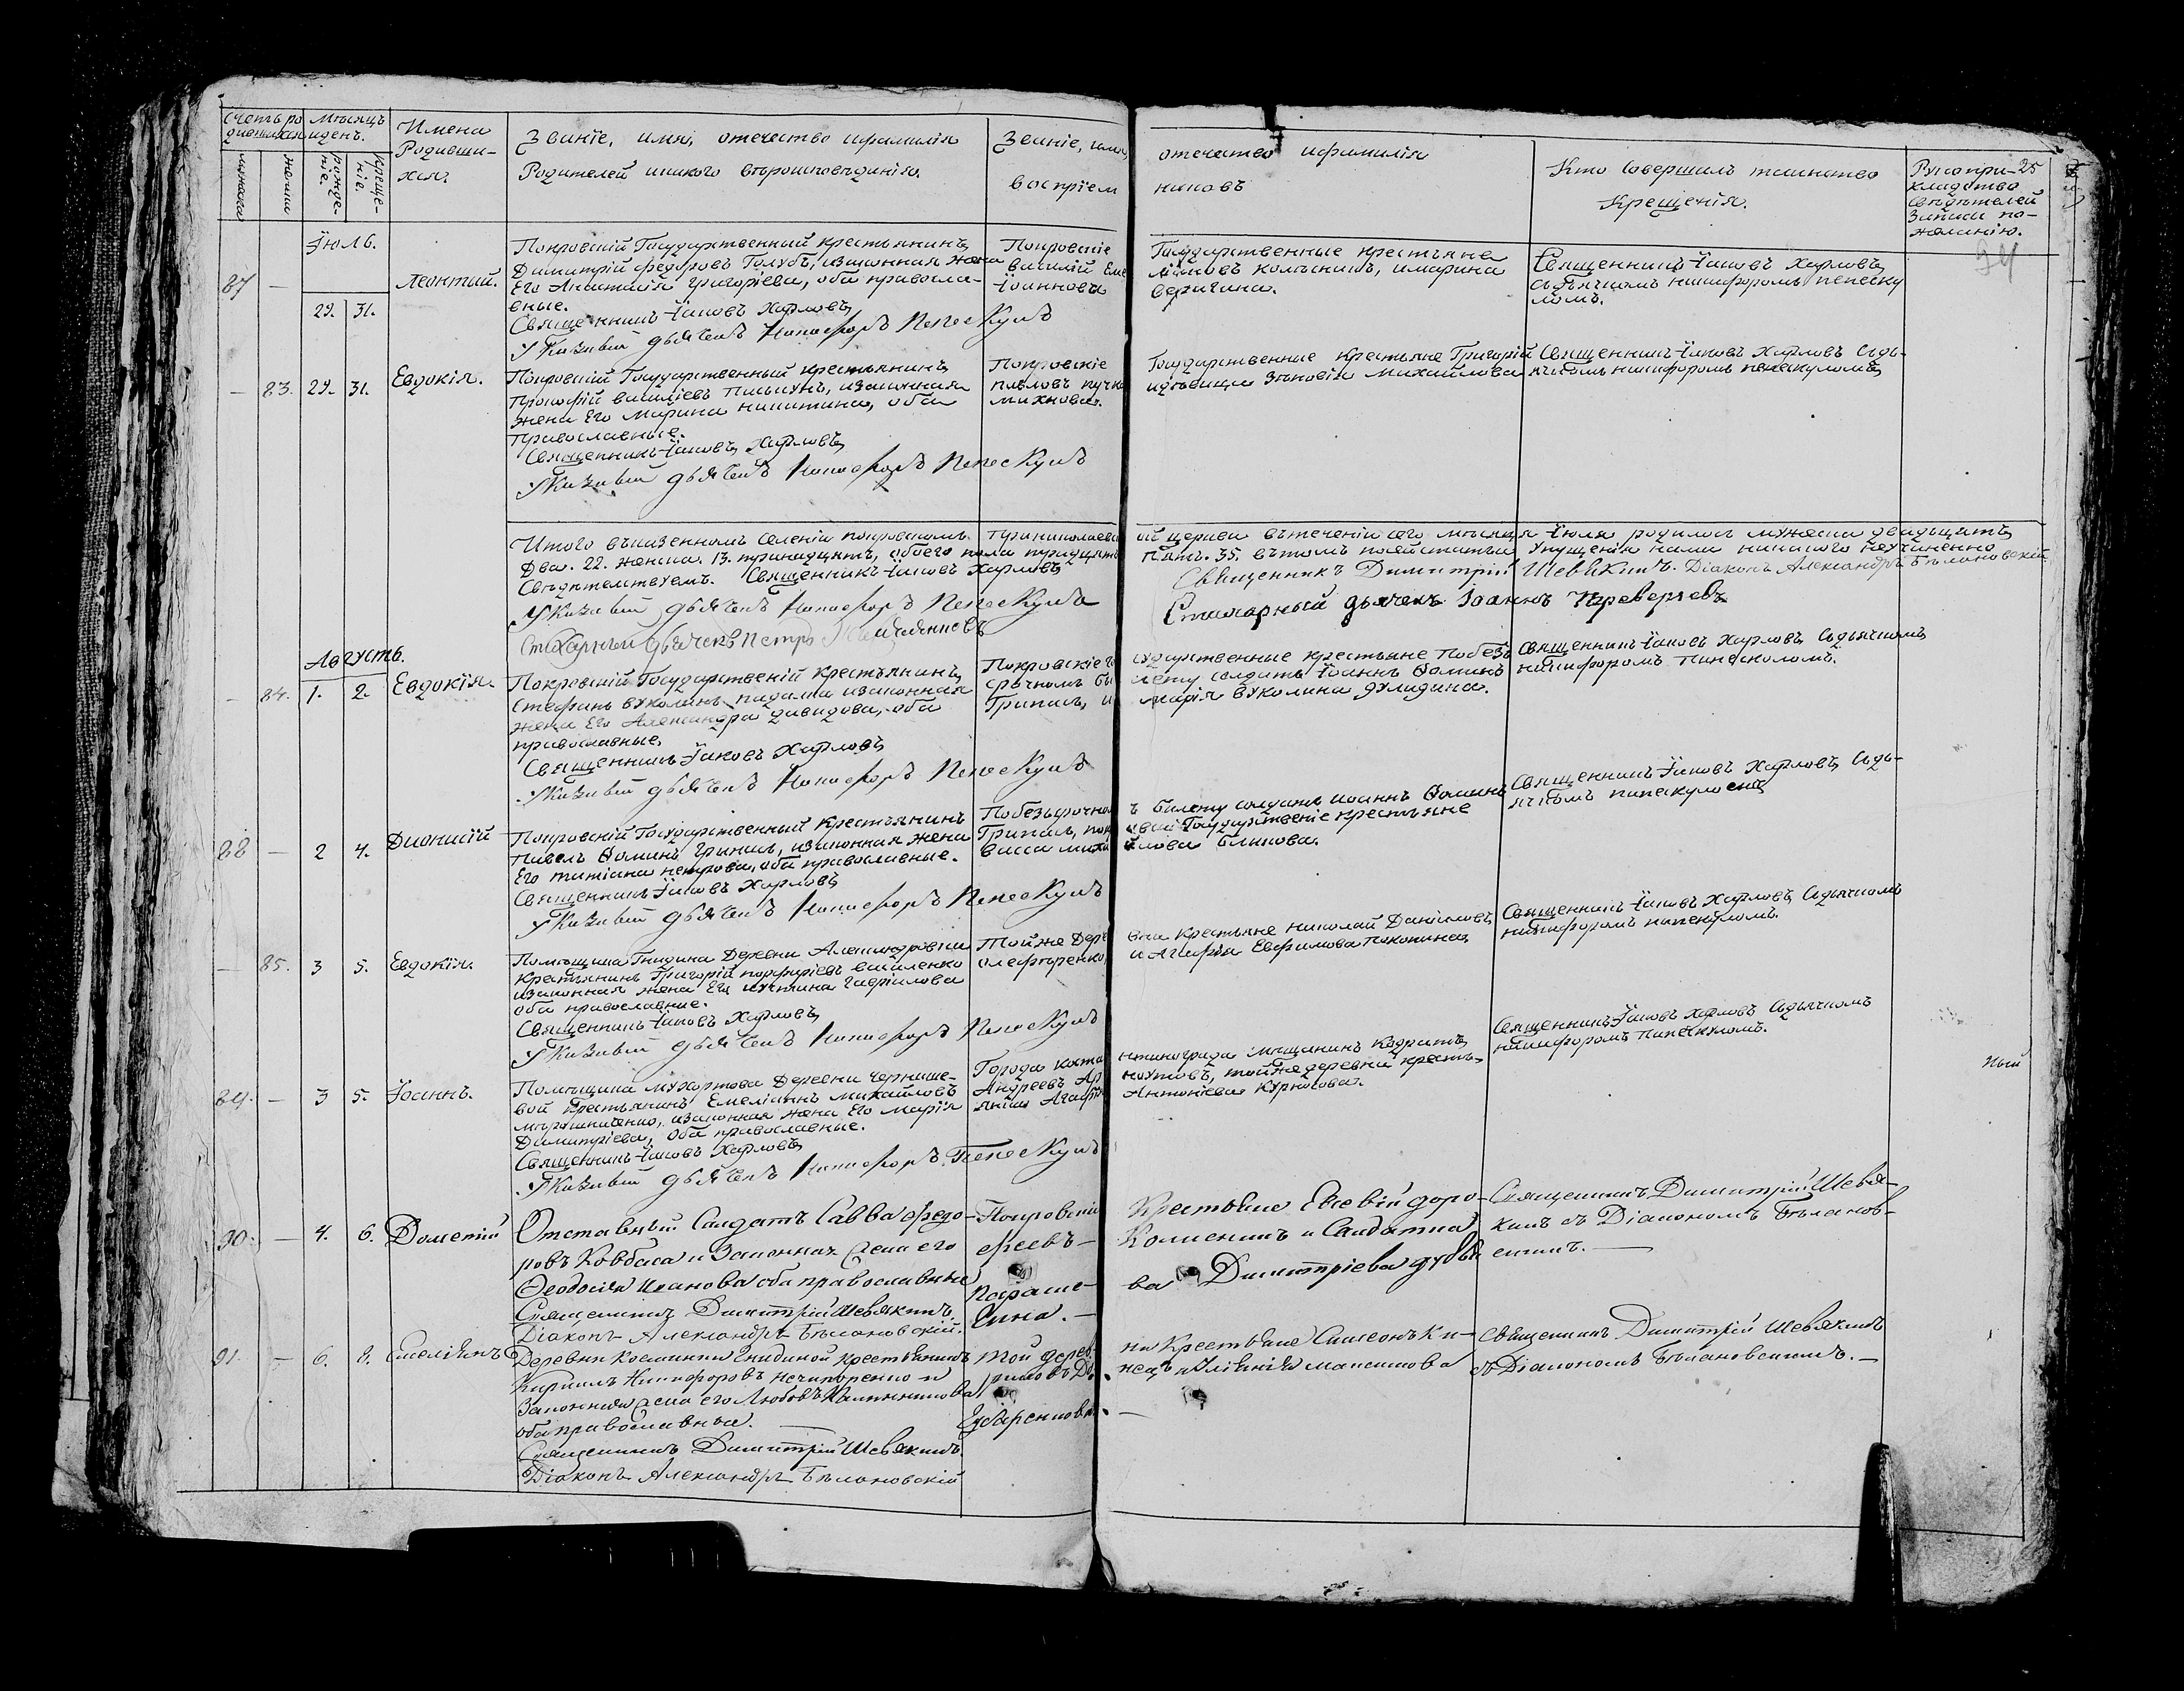 Счетъ ро Мѣсяцъ
дившихся иденъ.
мужеска
женска
рожде-
ніе.
креще-
ніе.
Имена
Родивши-
хся.
Званіе, имя, отечество ифамилія
Родителей икакого вѣроисповѣданія.
Званіе, имя,
отечество ифамилія
воспріем
никовъ
Кто Совершилъ таинство
Крещенія.
Рукопри-
кладство
Свѣдѣтелей
Записи по-
желанію.
25
Іюль.
87 — 29. 31. Леонтий.
Покровскій Государственный крестьянинъ
Димитрій федоровъ Голубъ, изаконная жена
Его Анастасія григоріева, оба правосла-
вные.
Священникъ Іаковъ Харловъ
Указный дьячекъ Никифоръ Пепескулъ
Покровскіе
василій Еме
Іоаннова
Государственные крестьяне
ліановъ колѣсникъ, имарина
веригина.
Священникъ Іаковъ Харловъ
съдьячкомъ никифоромъ пепеску
ломъ.
— 83. 29. 31. Евдокія.
Покровскій Государственный крестьянинъ
Прокофій василіевъ Письмунъ, изаконная
жена Его Марина никитина, оба
православные.
Священникъ Іаковъ Харловъ
Указный дьячекъ Никифоръ Пепескулъ
Покровскіе
павловъ пучко
михнова.
Государственные крестьяне Григорій
идѣвица Зѣновія Михайлова
Священникъ Іаковъ Харловъ Съдь-
ячкомъ никифоромъ пепескуломъ
Итого въказенномъ Селеніи покровскомъ
Два. 22. женска. 13. тринадцять, обоего пола тридцять
Свѣдѣтелствуемъ. Священникъ Іаковъ Харловъ
Указный дьячекъ Никифоръ Пепескулъ
Стихарный дьячекъ Петръ
приниколаевс
ой церкви втеченіи сего мѣсяця Іюля родилось мужеска двадьцять
пять. 35. втомъ Упущенія нами никакого неучиненно
Священникъ Димитрій Шевякинъ. Діаконъ Александръ Бѣлановскій
Стихарный дьячекъ Іоаннъ Переверзевъ
Августъ.
— 84. 1. 2. Евдокія.
Покровскій Государственій Крестьянинъ
Стефанъ вуколинъ падалка изаконная
жена Его Александра давидова, оба
православные.
Священникъ Іаковъ Харловъ
Указный дьячекъ Никифоръ Пепескулъ
Покровскіе г
срочномъ би
Грипасъ, и
сударственные крестьяне Побезъ
лету солдатъ Іоаннъ Ѳоминъ
марія вуколина дулидина.
Священникъ Іаковъ Харловъ Съдьячкомъ
никифоромъ пипесколомъ.
88 — 2 4. Дионисій
Покровскій Государственный Крестьянинъ
Павелъ Ѳоминъ Грипасъ, изаконная жена
Его татіана петрова, оба православные.
Священникъ Іаковъ Харловъ
Указный дьячекъ Никифоръ Пепескулъ
Побезсрочном
Грипасъ, пок
васса миха
ъ билету солдатъ иоаннъ Ѳоминъ
Государственіе крестьяне
йлова Бликова.
Священникъ Іаковъ Харловъ Съдь-
ячкомъ пипескуломъ
— 85. 3 5. Евдокія.
Помѣщика Гнидина Деревни Александровки
крестьянинъ Григорій порфиріевъ василенко
изаконная жена Его иустина гавріилова
оба православніе.
Священникъ Іаковъ Харловъ
Указный дьячекъ Никифоръ Пепескулъ
Тойже Дере
олефиренко
вни крестьяне николай Даніиловъ
и Агафія Евфимова покотина
Священникъ Іаковъ Харловъ Съдьячкомъ
никифоромъ пипескуломъ.
89. — 3 5. Іоаннъ.
Помѣщика мухортова Деревни Чернише-
вой Крестьянинъ Емеліанъ михайловъ
мирошниченко, изаконная жена Его Марія
Димитріева, Оба православные.
Священникъ Іаковъ Харловъ
Указный дьячекъ Никифоръ Пепескулъ
Города конста
Андреевъ Ар
янка Агафія
нтинограда мѣщанинъ Кодратъ
наутовъ, тойжедеревни кресть-
Антоніева Курносова.
Священникъ Іаковъ Харловъ Съдьячкомъ
никифоромъ пипескуломъ.
ный
90. — 4. 6. Дометій
Отставный Салдатъ Савва федо-
ровъ Ковбаса и Законная жена его
Ѳеодосія Иванова оба православные
Священникъ Димитрій Шевякинъ
Діаконъ Александръ Бѣлановскій.
Покровскіе
феевъ —
Параске-
Крестьяне Евсевій доро-
Коленикъ и Салдатка
ва Димитріева дубя
Священникъ Димитрій Шевя-
кинъ съ Діакономъ Бѣланов-
скимъ. —
91. — 6. 8. Емеліянъ
Деревни Космини Гнидиной крестьянинъ
Кириллъ Никифоровъ нечипоренко и
Законная жена его Любовъ Каллиникова
оба православныя. —
Священникъ Димитрій Шевякинъ.
Діаконъ Александръ Бѣлановскій
той дерев
Губаренкова.
ни Крестьяне Симеонъ Ки-
нецъ Максимова
Священникъ Димитрій Шевякинъ
съ Діакономъ Бѣлановскимъ. —